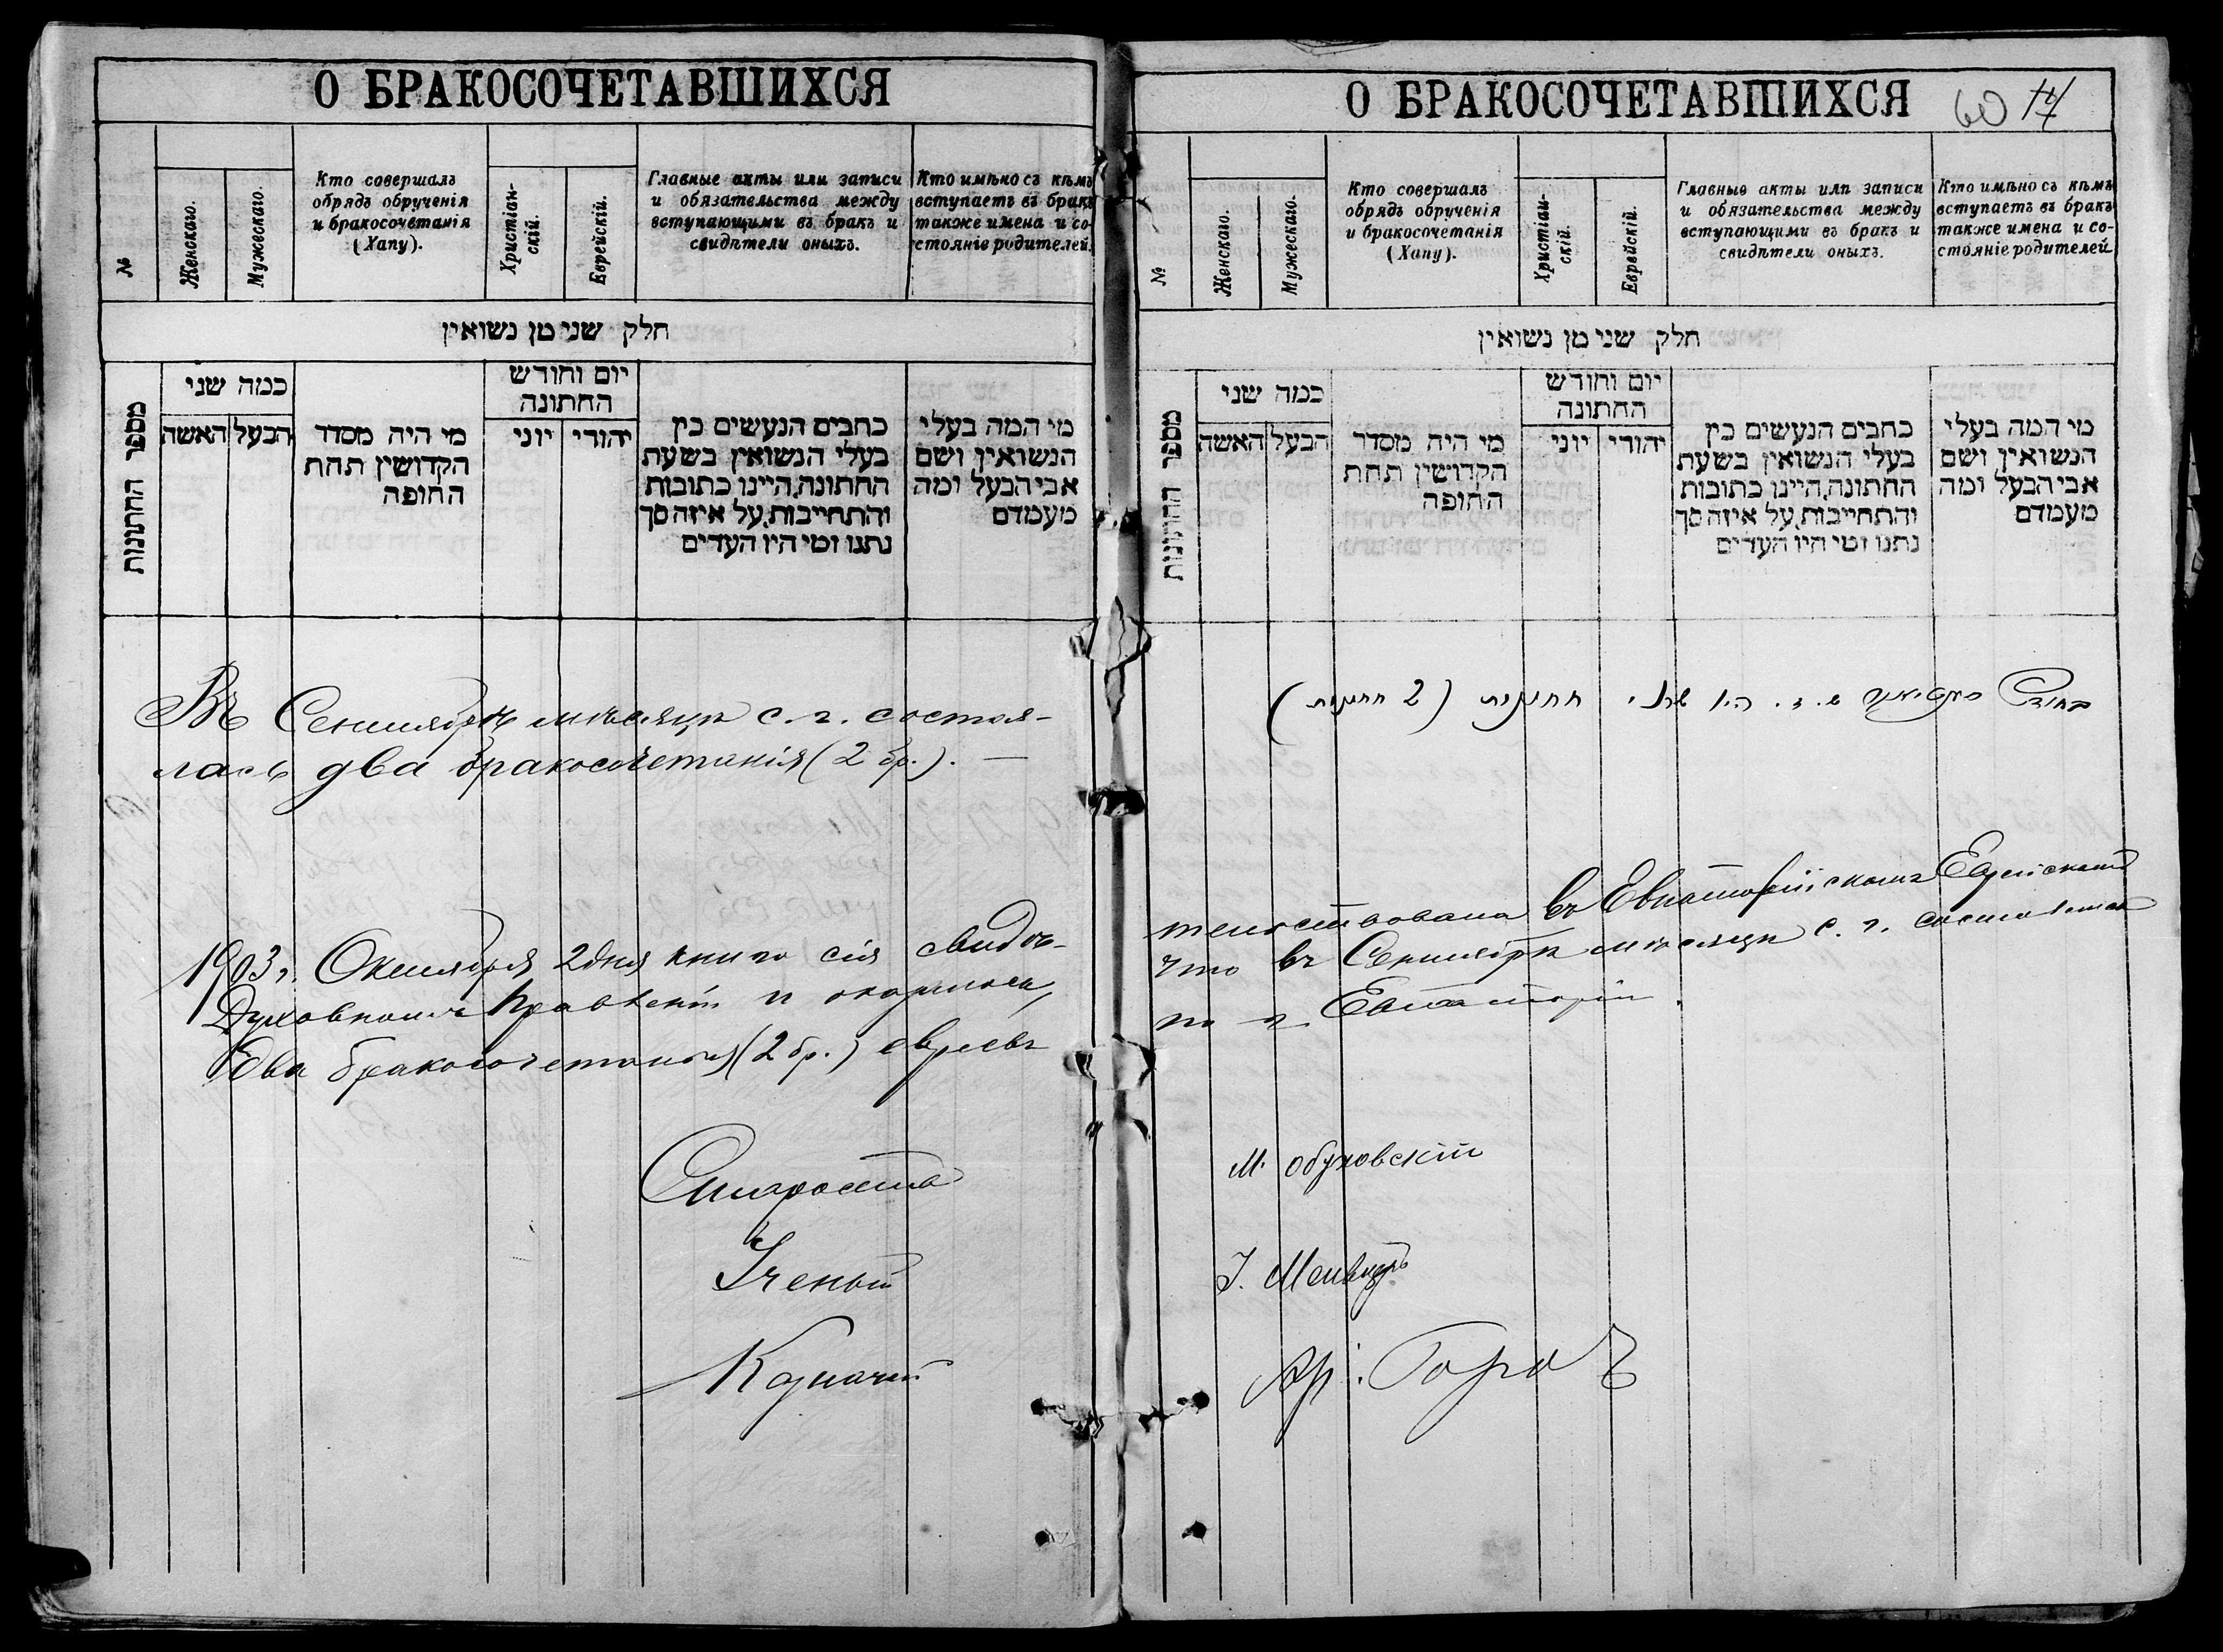 О БРАКОСОЧЕТАВШИХСЯ
№
Женскаго.
Мужескаго.
Кто совершалъ
обрядъ обрученія
и бракосочетанія
(Хапу).
Христіан-
скій.
Еврейскій.
Главные акты или записи
и обязательства между
вступающими въ бракъ и
свидѣтели оныхъ.
Кто имѣно съ кѣмъ
вступаетъ въ бракъ
также имена и со-
стояніе родителей.
חלק שני מן נשואין
מספר החתונות
כמה שני
האשה
הבעל
מי היה מסדר
הקדושין תחת
החופה
יום וחודש
החתונה
יוני
יהודי
כתבים הנעשים בין
בעלי הנשואין בשעת
החתונה, היינו כתובות
והתחייבות, על איזה סך
נתנו ומי היו העדים
מי המה בעלי
הנשואין ושם
אבי הבעל ומה
מעמדם
Въ Сентябрѣ мѣсяцѣ с. г. состоя-
лась два бракосочетанія (2 бр.). —
1903 г. Октября 2 дня книга сія свидѣ-
Духовномъ Правленіи и оказалось,
два бракосочетанія (2 бр.) евреевъ
Староста
Ученый
Казначей
О БРАКОСОЧЕТАВШИХСЯ
60
№
Женскаго.
Мужескаго.
Кто совершалъ
обрядъ обрученія
и бракосочетанія
(Хапу).
Христіан-
скій.
Еврейскій.
Главные акты или записи
и обязательства между
вступающими въ бракъ и
свидѣтели оныхъ.
Кто имѣно съ кѣмъ
вступаетъ въ бракъ
также имена и со-
стояніе родителей
חלק שני מן נשואין
מספר החתונות
כמה שני
האשה
הבעל
מי היה מסדר
הקדושין תחת
החופה
יום וחודש
החתונה
יוני
יהודי
כתבים הנעשים בין
בעלי הנשואין בשעת
החתונה, היינו כתובות
והתחייבות, על איזה סך
נתנו ומי היו העדים
מי המה בעלי
הנשואין ושם
אבי הבעל ומה
מעמדם
בחודש סעפטיאבר ש. ז. היו שתי חתונות (2 חתונות)
тельствована въ Евпаторійскомъ Еврейскомъ
что въ Сентябрѣ мѣсяцѣ с. г. состоялись
по г. Евпаторіи.
М. Обуховскій